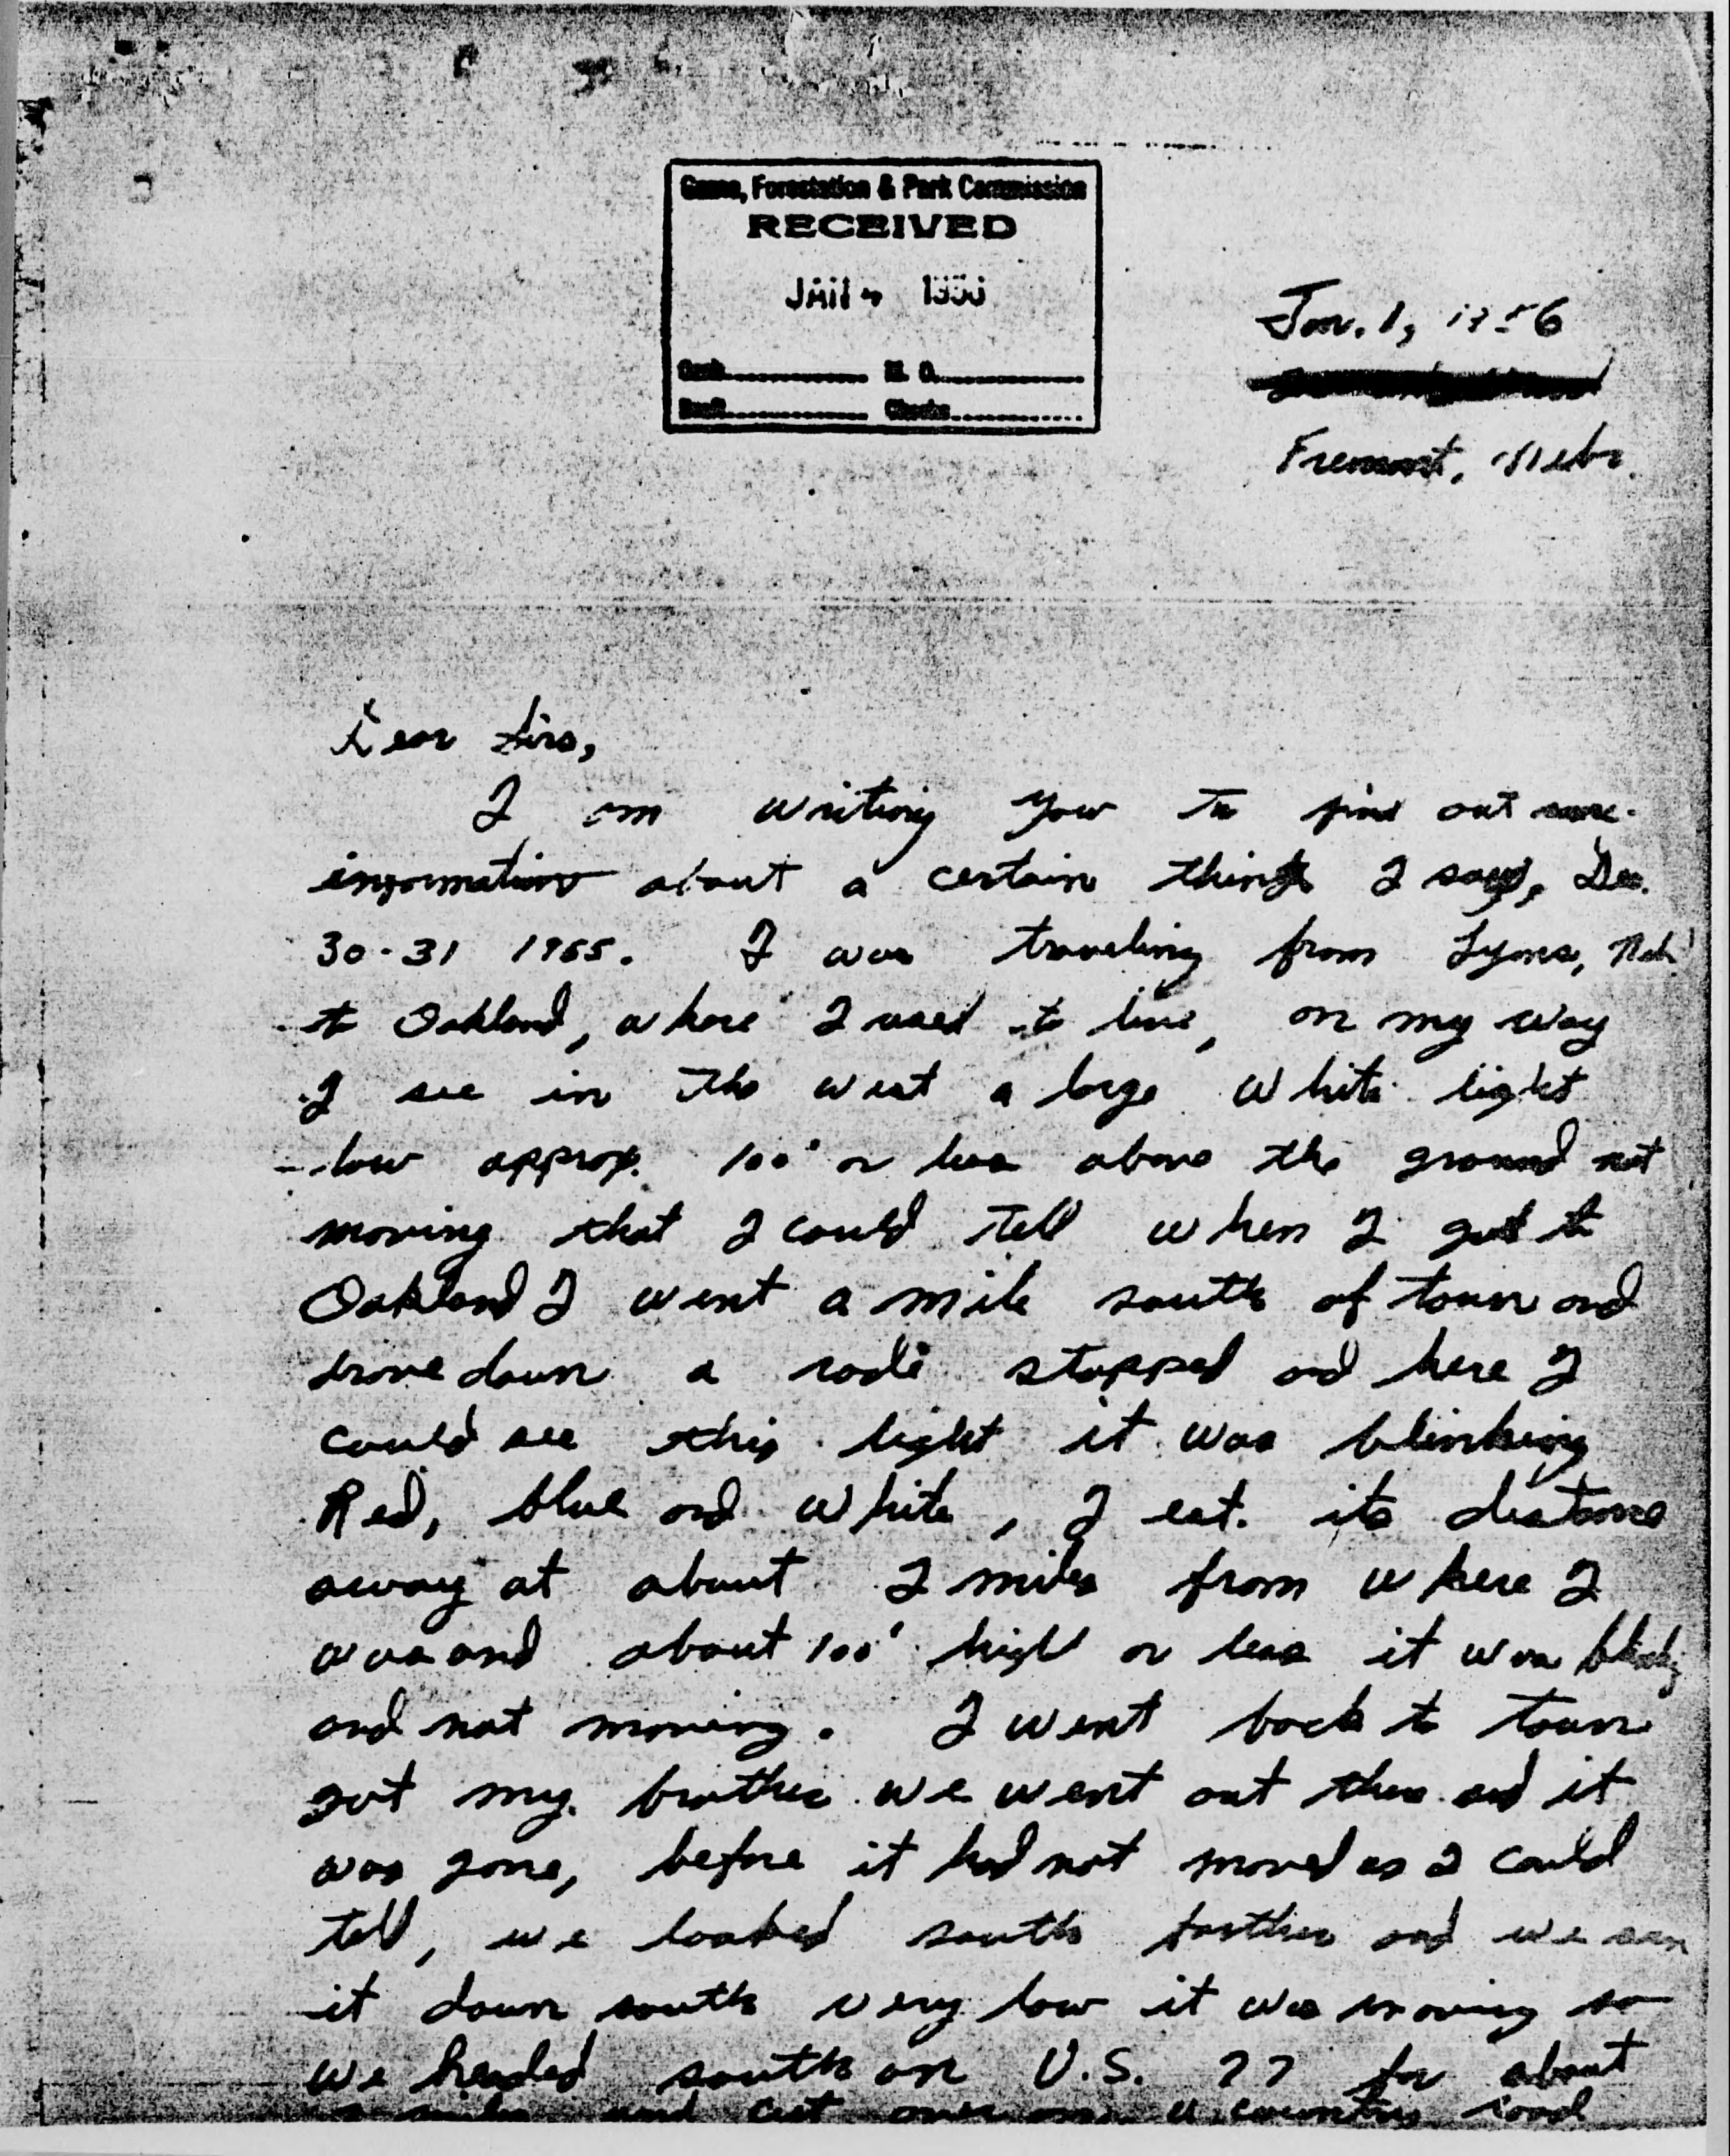 Game, Forestation & Park Commission
RECEIVED
JAN 4
M. O.
Draft Checks
Jan. 1, 1956
Fremont, Nebr.
Dear Sirs,
I am writing you to find out more
information about a certain thing I saw, Dec.
30-31 1955. I was traveling from Lyons, Neb.
to Oakland, where I used to live, on my way
I see in the west a large white light
low approx. 100' or less above the ground not
moving that I could tell when I got to
Oakland I went a mile south of town and
drove down a rode stopped and here I
could see this light it was blinking
Red, blue and white, I est. its distance
away at about 2 miles from where I
was and about 100' high or less it was
and not moving. I went back to town
got my brother we went out there and it
was gone, before it had not moved as I could
tell, we looked south farther and we saw
it down south very low it was moving so
we headed south on U.S. 77 for about
miles and cut over on a country road